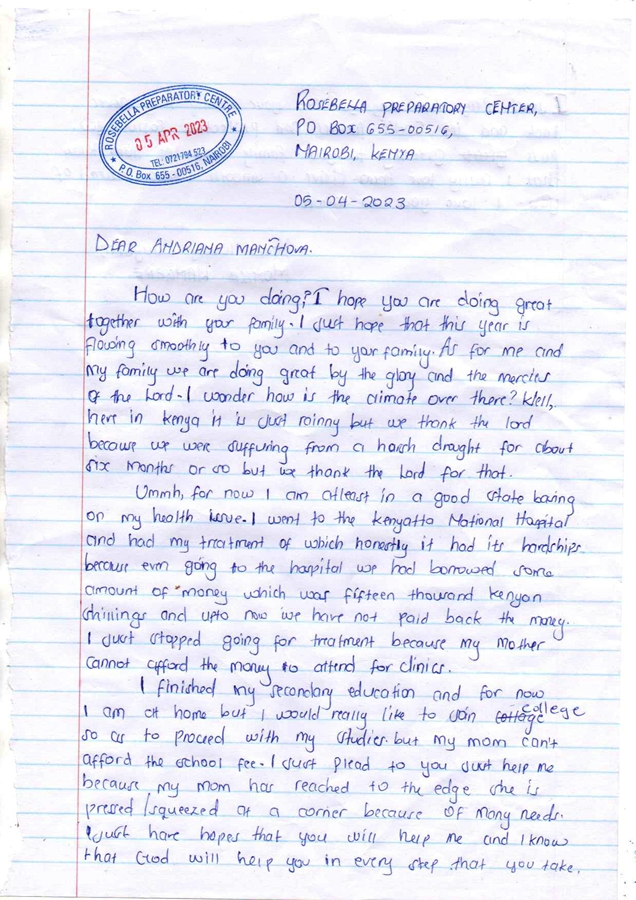 ROSEBELLA PREPARATORY CENTRE
05 APR 2023
TEL: 0721794 523
P.O. Box 655 - 00516, NAIROBI
ROSEBELLA PREPARATORY CENTER,
PO BOX 655-00516,
NAIROBI, KENYA
05-04-2023
DEAR ANDRIANA MANČHOVA.
How are you doing? I hope you are doing great
together with your family. I just hope that this year is
flowing smoothly to you and to your family. As for me and
my family we are doing great by the glory and the mercies
of the Lord. I wonder how is the climate over there? Well,
here in kenya it is just rainny but we thank the lord
because we were suffuring from a harsh draught for about
six months or so but we thank the Lord for that.
Ummh, for now I am atleast in a good state basing
on my health issue. I went to the kenyatta National Hospital
and had my treatment of which honestly it had its hardships
because even going to the hospital we had borrowed some
amount of money which was fifteen thousand kenyan
shillings and upto now we have not paid back the money.
I just stopped going for treatment because my mother
cannot afford the money to attend for clinics.
I finished my secondary education and for now
I am at home but I would really like to join college
so as to proceed with my studies. but my mom can't
afford the school fee. I just plead to you just help me
because my mom has reached to the edge she is
pressed /squeezed at a corner because of many needs.
I just have hopes that you will help me and I know
that God will help you in every step that you take.